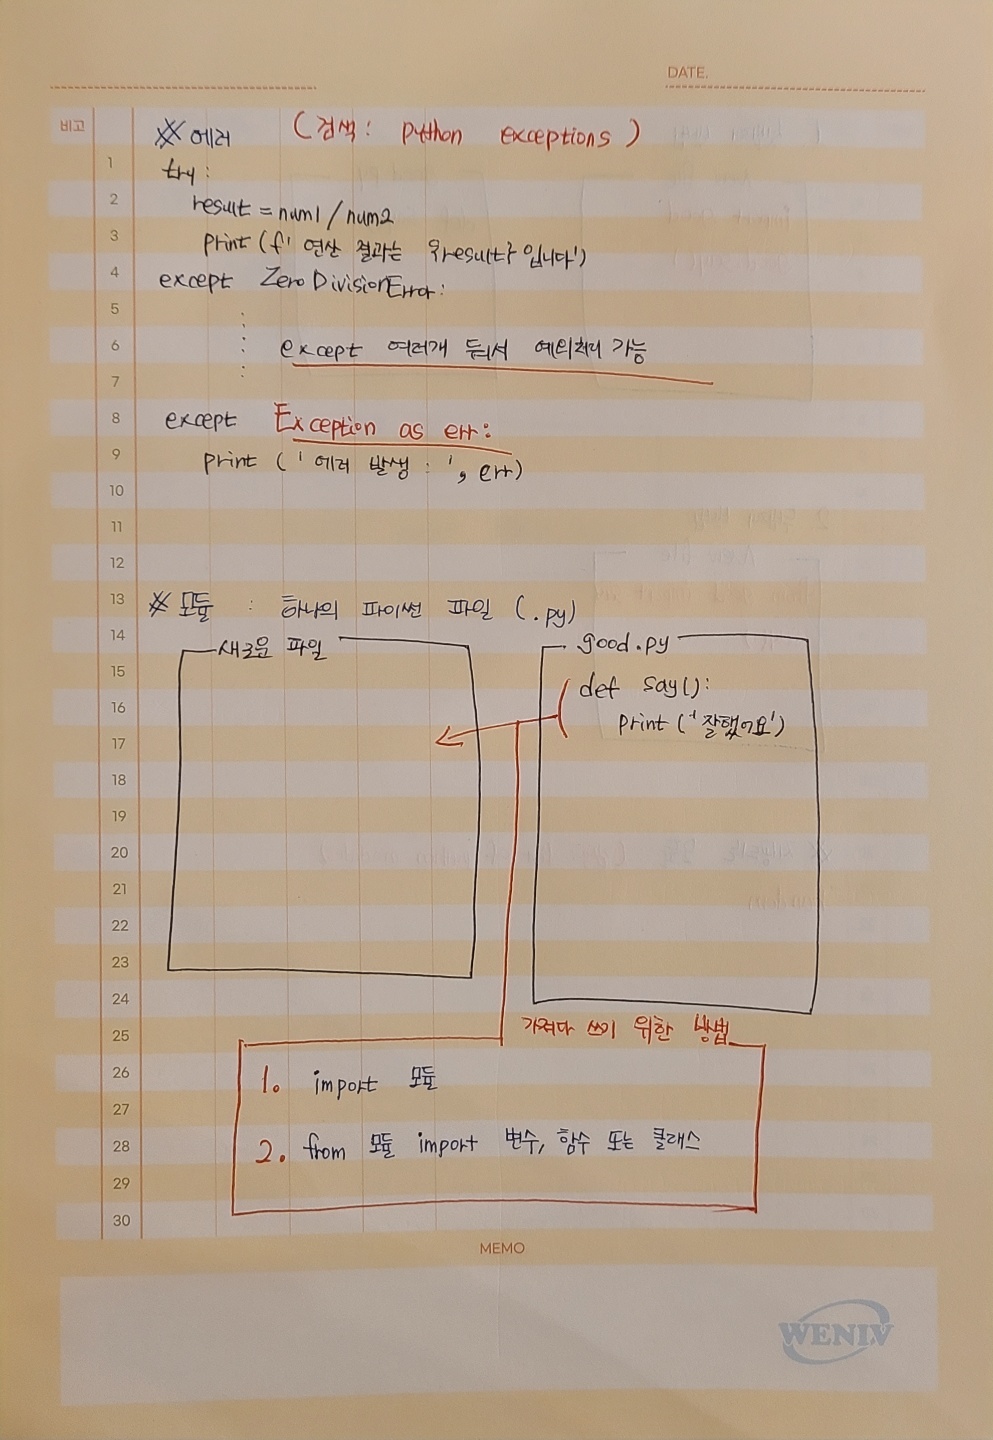 DATE.
비고
※ 에러 (검색: python exceptions)
1 try:
2 result = num1 / num2
3 print(f' 연산 결과는 {result} 입니다')
4 except ZeroDivisionError:
5
6 except 여러개 둬서 예외처리 가능
7
8 except Exception as err:
9 print (' 에러 발생 : ', err)
10
11
12
13 ※ 모듈 : 하나의 파이썬 파일 (.py)
14 새로운 파일 good.py
15 def say():
16 print('잘했어요')
17
18
19
20
21
22
23
24
25 가져다 쓰기 위한 방법
26 1. import 모듈
27
28 2. from 모듈 import 변수, 함수 또는 클래스
29
30
MEMO
WENIV